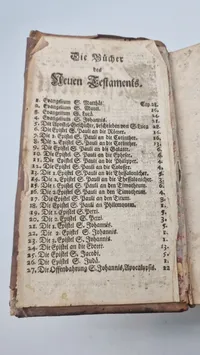 Die Bücher
des
Neuen Testaments.
1. Evangelium S. Matthäi. Cap. 28.
2. Evangelium S. Marci. 16.
3. Evangelium S. Lucä. 24.
4. Evangelium S. Johannis. 21.
5. Der Apostel Geschichte, beschrieben von S. Luca 28.
6. Die Epistel S. Pauli an die Römer. 16.
7. Die 1. Epistel S. Pauli an die Corinther. 16.
8. Die 2. Epistel S. Pauli an die Corinther. 13.
9. Die Epistel S. Pauli an die Galater. 6.
10. Die Epistel S. Pauli an die Epheser. 6.
11. Die Epistel S. Pauli an die Philipper. 4.
12. Die Epistel S. Pauli an die Colosser. 4.
13. Die 1. Epistel S. Pauli an die Thessalonicher. 5.
14. Die 2. Epistel S. Pauli an die Thessalonicher. 3.
15. Die 1. Epistel S. Pauli an den Timotheum. 6.
16. Die 2. Epistel S. Pauli an den Timotheum. 4.
17. Die Epistel S. Pauli an Titum. 3.
18. Die Epistel S. Pauli an Philemonem. 1.
19. Die 1. Epistel S. Petri. 5.
20. Die 2. Epistel S. Petri. 3.
21. Die 1. Epistel S. Johannis. 5.
22. Die 2. Epistel S. Johannis. 1.
23. Die 3. Epistel S. Johannis. 1.
24. Die Epistel an die Ebreer. 13.
25. Die Epistel S. Jacobi. 5.
26. Die Epistel S. Judä. 1.
27. Die Offenbahrung S. Johannis, Apocalypsis. 22